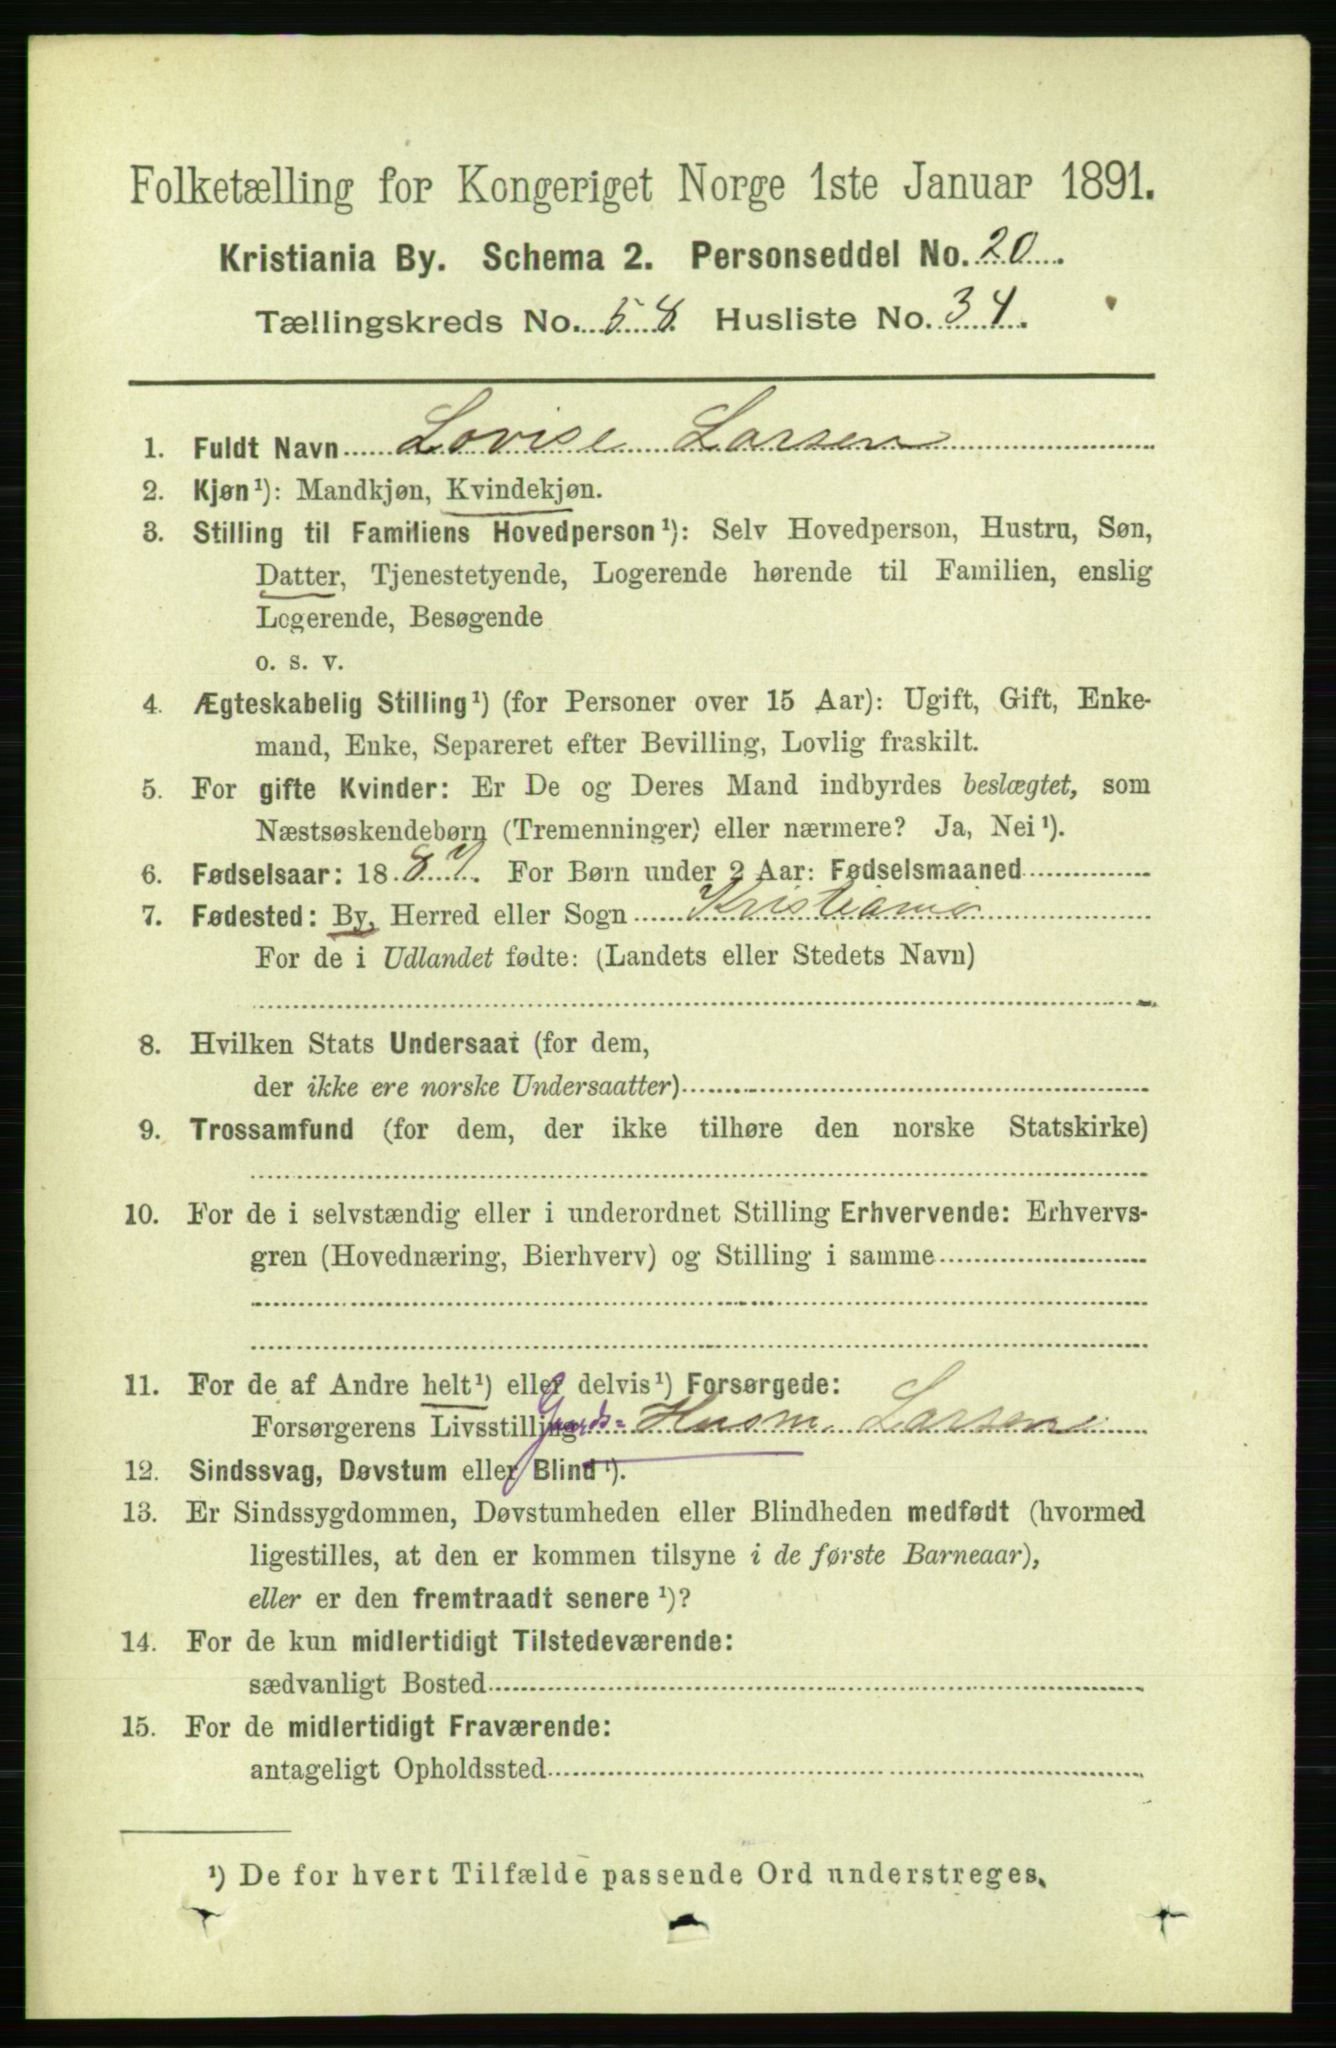 Folketælling for Kongeriget Norge 1ste Januar 1891.
Kristiania By. Schema 2. Personseddel No. 20
Tællingskreds No. 58 Husliste No. 34
1. Fuldt Navn Lovise Larsen
2. Kjøn¹): Mandkjøn, Kvindekjøn.
3. Stilling til Familiens Hovedperson¹): Selv Hovedperson, Hustru, Søn,
Datter, Tjenestetyende, Logerende hørende til Familien, enslig
Logerende, Besøgende
o. s. v.
4. Ægteskabelig Stilling¹) (for Personer over 15 Aar): Ugift, Gift, Enke-
mand, Enke, Separeret efter Bevilling, Lovlig fraskilt.
5. For gifte Kvinder: Er De og Deres Mand indbyrdes beslægtet, som
Næstsøskendebørn (Tremenninger) eller nærmere? Ja, Nei¹).
6. Fødselsaar: 1887. For Børn under 2 Aar: Fødselsmaaned
7. Fødested: By, Herred eller Sogn Kristiania
For de i Udlandet fødte: (Landets eller Stedets Navn)
8. Hvilken Stats Undersaat (for dem,
der ikke ere norske Undersaatter)
9. Trossamfund (for dem, der ikke tilhøre den norske Statskirke)
10. For de i selvstændig eller i underordnet Stilling Erhvervende: Erhvervs-
gren (Hovednæring, Bierhverv) og Stilling i samme
11. For de af Andre helt¹) eller delvis¹) Forsørgede:
Forsørgerens Livsstilling Gaards= Husm. Larsen
12. Sindssvag, Døvstum eller Blind¹).
13. Er Sindssygdommen, Døvstumheden eller Blindheden medfødt (hvormed
ligestilles, at den er kommen tilsyne i de første Barneaar),
eller er den fremtraadt senere¹)?
14. For de kun midlertidigt Tilstedeværende:
sædvanligt Bosted
15. For de midlertidigt Fraværende:
antageligt Opholdssted
¹) De for hvert Tilfælde passende Ord understreges.